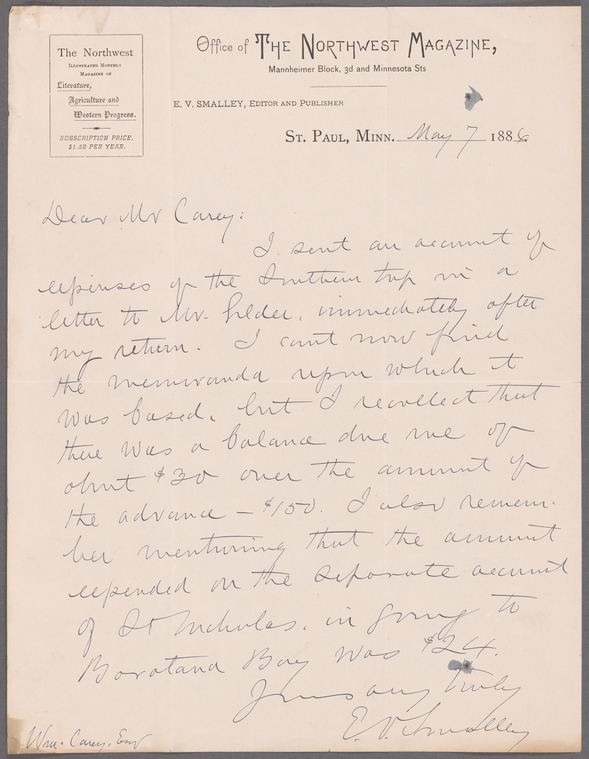 The Northwest
Illustrated Monthly
Magazine of
Literature,
Agriculture and
Western Progress.
SUBSCRIPTION PRICE.
$1.50 PER YEAR.
Office of The Northwest Magazine,
Mannheimer Block, 3d and Minnesota Sts
E. V. Smalley, Editor and Publisher
St. Paul, Minn. May 7 1886
Dear Mr Carey:
I sent an account of
expenses of the Southern trip in a
letter to Mr. Gilder, immediately after
my return. I cant now find
the memoranda upon which it
was based, but I recollect that
there was a balance due me of
about $30 over the amount of
the advance – $150. I also remem-
ber mentioning that the amount
expended on the separate account
of St Nicholas, in going to
Barataria Bay was $24.
Yours very truly
E. V. Smalley
Wm. Carey, Esq